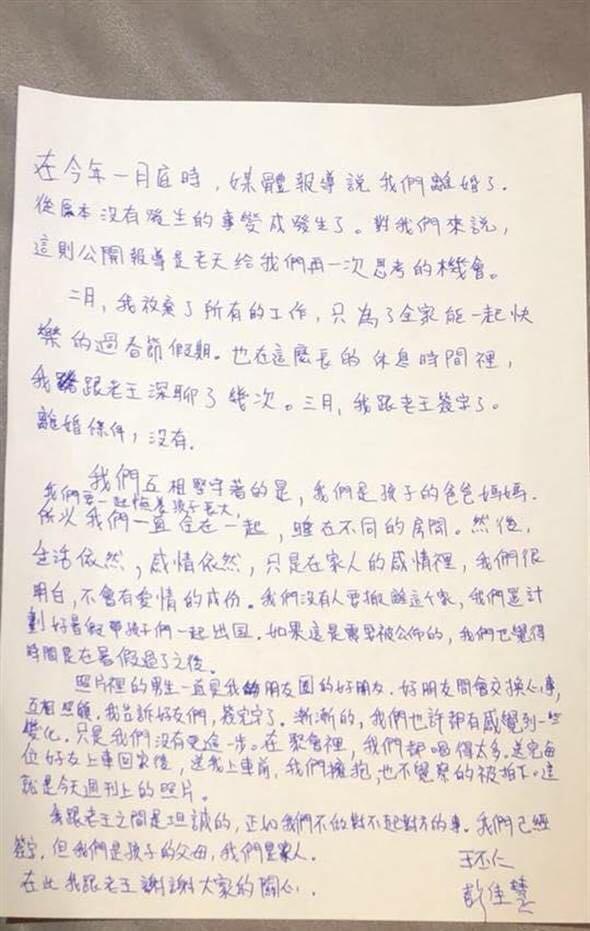 在今年一月底時，媒體報導說我們離婚了.
從原本沒有發生的事變成發生了。對我們來說，
這則公開報導是老天給我們再一次思考的機會。
二月，我放棄了所有的工作，只為了全家能一起快
樂的過春節假期。也在這麼長的休息時間裡，
我跟老王深聊了幾次。三月，我跟老王簽字了。
離婚條件，沒有.
我們互相堅守著的是，我們是孩子的爸爸媽媽.
我們要一起陪著孩子長大，
所以我們一直住在一起，睡在不同的房間。然後，
生活依然，感情依然，只是在家人的感情裡，我們很
明白，不會有愛情的成份。我們沒有人要搬離這个家，我們還計
劃好暑假帶孩子們一起出国.如果這是需要被公佈的，我們也覺得
時間是在暑假過了之後。
照片裡的男生一直是我朋友圈的好朋友.好朋友間會交換心事，
互相照顧.我告訴好友們，簽完字了.漸漸的，我們也許都有感覺到一些
變化.只是我們沒有更進一步。在聚會裡，我們都喝得太多.送完每
位好友上車回家後，送我上車前，我們擁抱，也不覺察的被拍下.這
就是今天週刊上的照片。
我跟老王之間是坦誠的，正如我們不做對不起對方的事.我們已經
簽字，但我們是孩子的父母，我們是家人.
王丕仁
在此我跟老王謝謝大家的關心.
彭佳慧